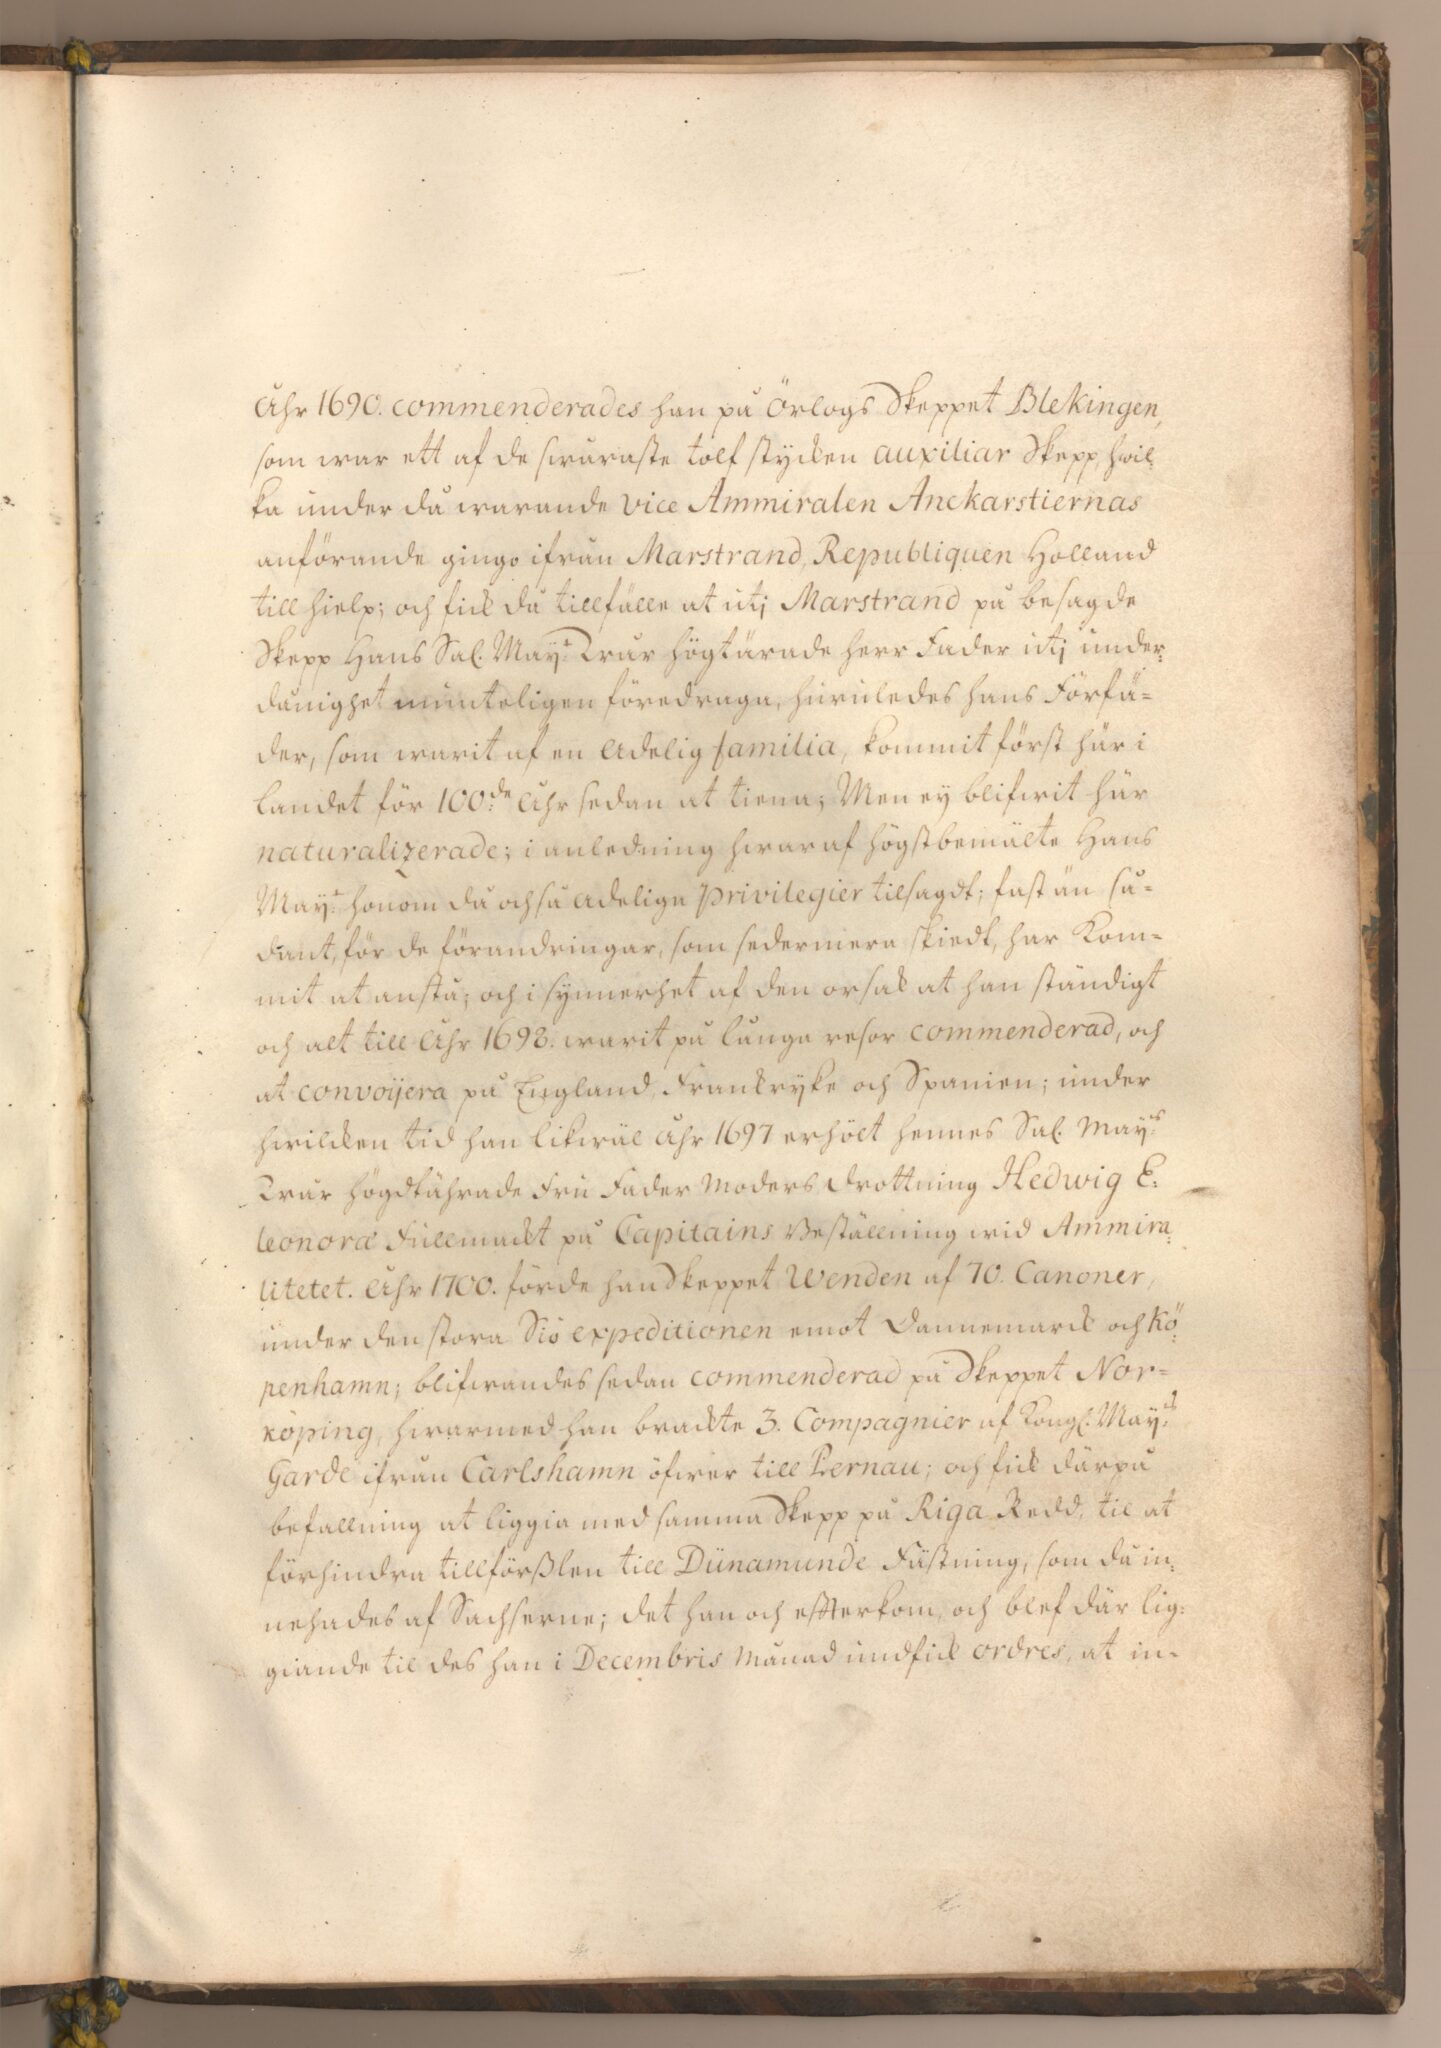 Åhr 1690. commenderades han på Örlogs Skeppet Blekingen,
som war ett af de swåraste tolf stycken auxiliar Skepp, hwil-
ka under då warande vice Ammiralen Anckarstiernas
anförande gingo ifrån Marstrand, Republiquen Holland
till hielp; och fick då tillfälle at utj Marstrand på besagde
Skepp Hans Sal. Mayt. Wår högtärade herr Fader utj under-
dånighet munteligen föredraga, huruledes hans Förfä-
der, som warit af en Adelig familia, kommit först här i
landet för 100de Åhr sedan at tiena; Men ey blifwit här
naturalizerade; i anledning hwaraf högstbemälte Hans
Mayt. honom då ochså Adeliga Privilegier tilsagdt; fast än så-
dant, för de förandringar, som sedermera skiedt, har kom-
mit at anstå; och i synnerhet af den orsak at han ständigt
och alt till Åhr 1698. warit på långa resor commenderad, och
at convoijera på England, Franckryke och Spanien; under
hwilcken tid han likwäl Åhr 1697 erhölt hennes Sal. Mayts
Wår högdtährade Fru Fader Moders Drottning Hedwig E-
leonoræ Fullmackt på Capitains Beställning wid Ammira-
litetet. Åhr 1700. förde han Skeppet Wenden af 70. Canoner,
under den stora Siö expeditionen emot Dannemarck och Kö-
penhamn; blifwandes sedan commenderad på Skeppet Nor-
köping, hwarmed han brackte 3. Compagnier af Kongl. Mayts
Garde ifrån Carlshamn öfwer till Pernau; och fick därpå
befallning at liggia med samma Skepp på Riga Redd, til at
förhindra tillförßlen till Dünamunde Fästning, som då in-
nehades af Sachserne; det han och effterkom, och blef där lig-
giande til des han i Decembris Månad undfick ordres, at in-